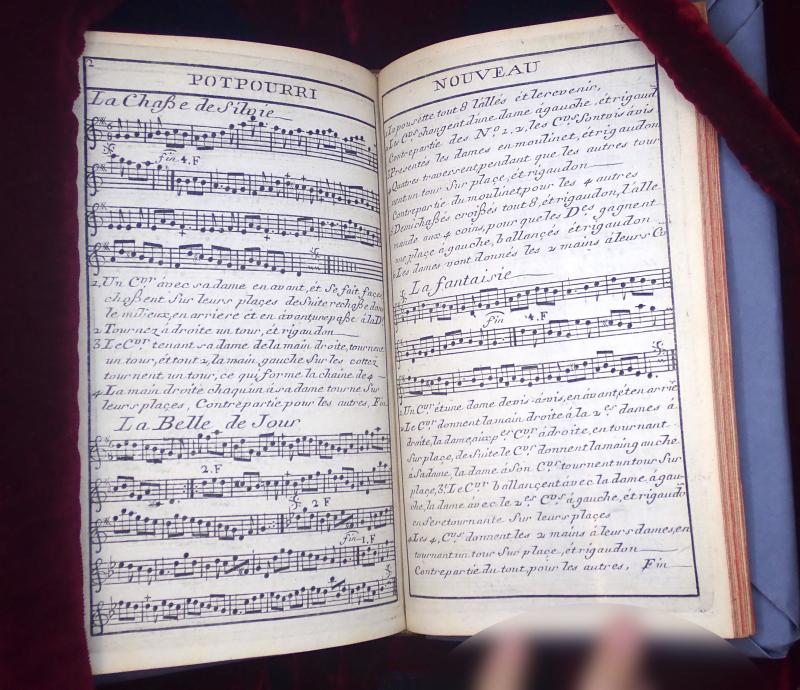 2
POTPOURRI
La Chaße de Silvie
fin 4.F
1, Un Cvr avec sa dame en avant, et se fait face,
chaßent Sur leurs plaçes de Suite rechaße dans
le milieux, en arriere et en avant, repaße à la D
2 Tournez à droite un tour, et rigaudon
3, Le Cvr tenant sa dame de la main droite, tournent
un tour, et tout 2, la main gauche Sur les cottez
tournent un tour, ce qui forme la chaine de 4
4, La main droite chaqu'un à sa dame tourne Sur
leurs plaçes, Contrepartie pour les autres, Fin
La Belle de Jour
2.F
2 F
fin 1.F
NOUVEAU
La pousette tout 8 l'allés et le revenir,
Les Cvrs changent d'une dame à gauche, et rigaud
Contrepartie des No. 1. 2, les Cvrs Sont vis à vis
3 Presentés les dames en moulinet, et rigaudon
4 Quatres traversent pendant que les autres tour
nent un tour Sur plaçe, et rigaudon
Contrepartie du moulinet pour les 4 autres
5 Demi chaßés croißés tout 8, et rigaudon, l'alle
mande aux 4 coins, pour que les Des gagnent
une plaçe à gauche, ballançés et rigaudon
6 Les dames vont donnés les 2 mains à leurs Cv
La fantaisie
fin 4.F
1, Un Cvr et une dame de vis-à-vis, en avant, et en arrie
2 Le Cvr donnent la main droite à la 2es dames à
droite, la dame aux pes Cvr à droite, en tournant
Sur plaçe, de Suite le Cvr donnent la main gauche
à sa dame, la dame à Son Cvr tournent un tour Sur
plaçe, 3, Le Cvr ballançent avec la dame à gau-
che, la dame avec le 2es Cvs à gauche, et rigaudō
en Se retournante Sur leurs plaçes
4 Les 4, Cvrs donnent les 2 mains à leurs dames, en
tournant un tour Sur plaçe, et rigaudon
Contrepartie du tout, pour les autres, Fin